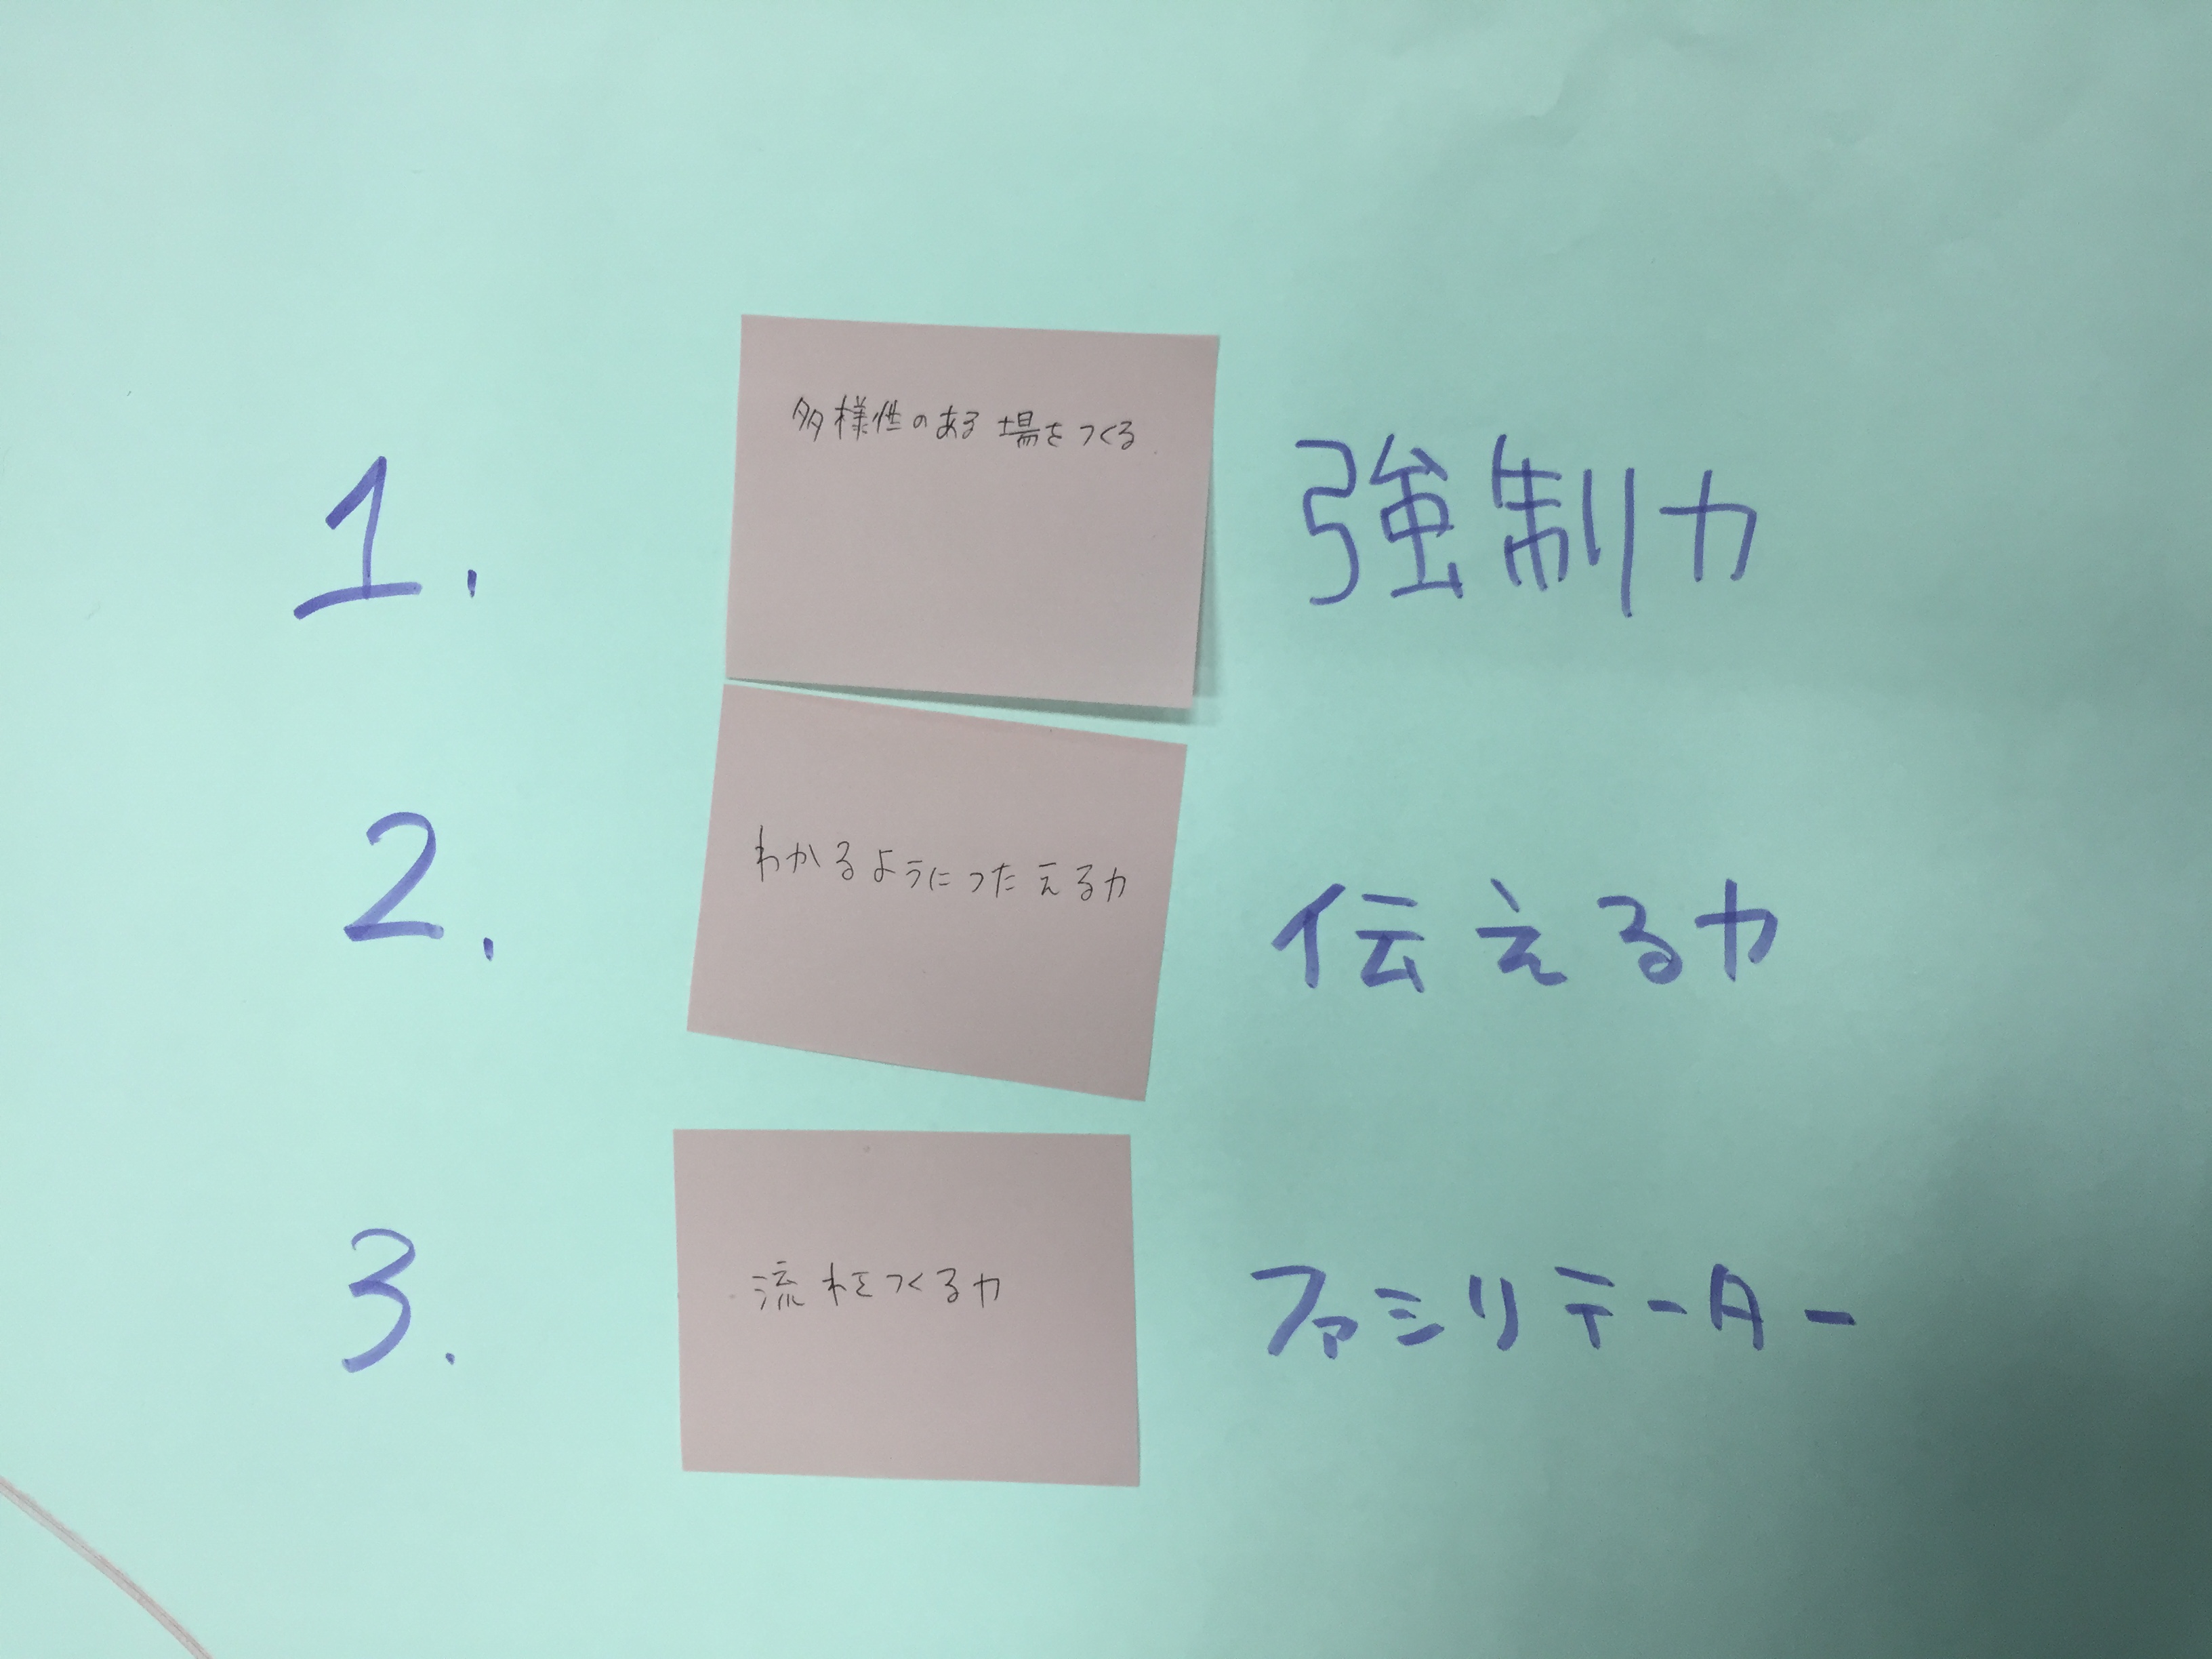 1. 多様性のある場をつくる 強制力
2. わかるようにつたえる力 伝える力
3. 流れをつくる力 ファシリテーター